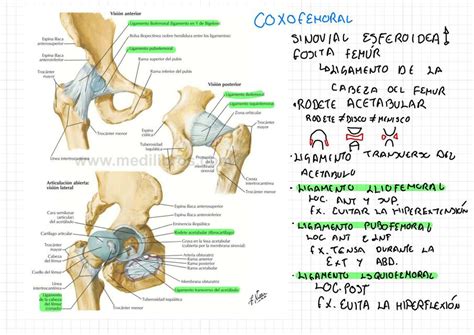 Visión anterior
Ligamento iliofemoral (ligamento en Y de Bigelow)
Bolsa iliopectínea (sobre hendidura entre los ligamentos)
Ligamento pubofemoral
Espina ilíaca anterosuperior
Espina ilíaca anteroinferior
Trocánter mayor
Rama superior del pubis
Rama inferior del pubis
Línea intertrocantérica
Trocánter menor
Visión posterior
Ligamento iliofemoral
Ligamento isquiofemoral
Zona orbicular
Espina ciática
Tuberosidad isquiática
Protrusión de la membrana sinovial
Trocánter mayor
Cresta intertrocantérica
Trocánter menor
www.medilibros.com
Articulación abierta: visión lateral
Cara semilunar (articular) del acetábulo
Cartílago articular
Trocánter mayor
Cabeza del fémur
Cuello del fémur
Línea intertrocantérica
Ligamento de la cabeza del fémur (cortado)
Espina ilíaca anterosuperior
Espina ilíaca anteroinferior
Eminencia iliopúbica
Rodete acetabular (fibrocartílago)
Grasa en la fosa acetabular (cubierta por la membrana sinovial)
Arteria obturatriz
Membrana obturatriz
Ligamento transverso del acetábulo
Tuberosidad isquiática
Trocánter menor
COXOFEMORAL
SINOVIAL ESFEROIDEA
FOSITA FEMUR
↳LIGAMENTO DE LA
CABEZA DEL FEMUR
• RODETE ACETABULAR
RODETE ≠ DISCO ≠ MENISCO
• LIGAMENTO TRANSVERSO DEL
ACETABULO
• LIGAMENTO ILIOFEMORAL
LOC. ANT Y SUP.
FX. EVITAR LA HIPEREXTENSIÓN
• LIGAMENTO PUBOFEMORAL
LOC ANT E INF
FX. TENSA DURANTE LA
EXT Y ABD.
• LIGAMENTO ISQUIOFEMORAL
LOC. POST
FX. EVITA LA HIPERFLEXIÓN